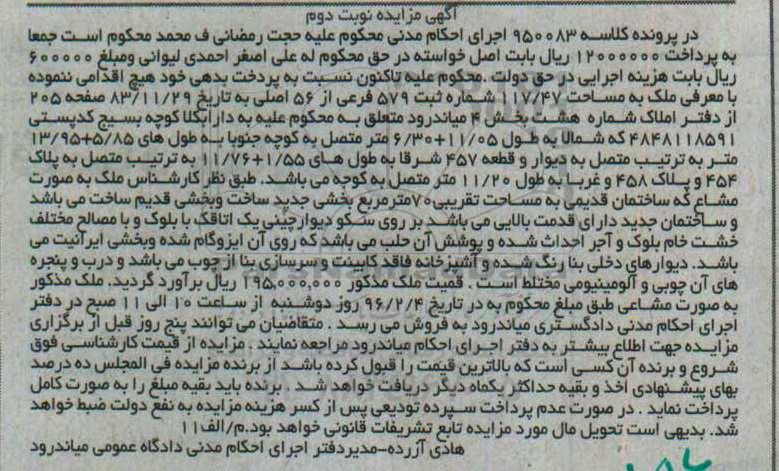 آگهی مزایده نوبت دوم
در پرونده کلاسه ۹۵۰۰۸۳ اجرای احکام مدنی محکوم علیه حجت رمضانی ف محمد محکوم است جمعا
به پرداخت ۱۲۰۰۰۰۰۰ ریال بابت اصل خواسته در حق محکوم له علی اصغر احمدی لیوانی ومبلغ ۶۰۰۰۰۰
ریال بابت هزینه اجرایی در حق دولت .محکوم علیه تاکنون نسبت به پردخت بدهی خود هیچ اقدامی ننموده
با معرفی ملک به مساحت ۲۱۷/۴۷ شماره ثبت ۵۷۹ فرعی از ۵۶ اصلی به تاریخ ۸۳/۱۱/۲۹ صفحه ۲۰۵
از دفتر املاک شماره هشت بخش ۴ میاندرود متعلق به محکوم علیه به دارابکلا کوچه بسیج کدپستی
۴۸۴۸۱۱۸۵۹۱ که شمالا به طول ۱۱/۰۵+۶/۳۰ متر متصل به کوچه جنوبا به طول های ۵/۸۵+۱۳/۹۵
متر به ترتیب متصل به دیوار و قطعه ۴۵۷ شرقا به طول های ۱/۵۵+۱۱/۷۶ به ترتیب متصل به پلاک
۴۵۴ و پلاک ۴۵۸ و غربا به طول ۱۱/۲۰ متر متصل به کوچه می باشد. طبق نظر کارشناس ملک به صورت
مشاع که ساختمان قدیمی به مساحت تقریبی۷۰مترمربع بخشی جدید ساخت وبخشی قدیم ساخت می باشد
و ساختمان جدید دارای قدمت بالایی می باشد بر روی سکو دیوارچینی یک اتاقک با بلوک و با مصالح مختلف
خشت خام بلوک و آجر احداث شده و پوشش آن حلب می باشد که روی آن ایزوگام شده وبخشی ایرانیت می
باشد. دیوارهای دخلی بنا رنگ شده و آشپزخانه فاقد کابینت و سرسازی بنا از چوب می باشد و درب و پنجره
های آن چوبی و آلومینیومی مختلط است . قمیت ملک مذکور ۱۹۵,۰۰۰,۰۰۰ ریال برآورد گردید. ملک مذکور
به صورت مشاعی طبق مبلغ محکوم به در تاریخ ۹۶/۲/۴ روز دوشنبه از ساعت ۱۰ الی ۱۱ صبح در دفتر
اجرای احکام مدنی دادگستری میاندرود به فروش می رسد . متقاضیان می توانند پنج روز قبل از برگزاری
مزایده جهت اطلاع بیشتر به دفتر اجرای احکام میاندرود مراجعه نمایند . مزایده از قیمت کارشناسی فوق
شروع و برنده آن کسی است که بالاترین قیمت را قبول کرده باشد از برنده مزایده فی المجلس ده درصد
بهای پیشنهادی اخذ و بقیه حداکثر یکماه دیگر دریافت خواهد شد . برنده باید بقیه مبلغ را به صورت کامل
پرداخت نماید . در صورت عدم پرداخت سپرده تودیعی پس از کسر هزینه مزایده به نفع دولت ضبط خواهد
شد. بدیهی است تحویل مال مورد مزایده تابع تشریفات قانونی خواهد بود.م/الف۱۱
هادی آزرده-مدیردفتر اجرای احکام مدنی دادگاه عمومی میاندرود